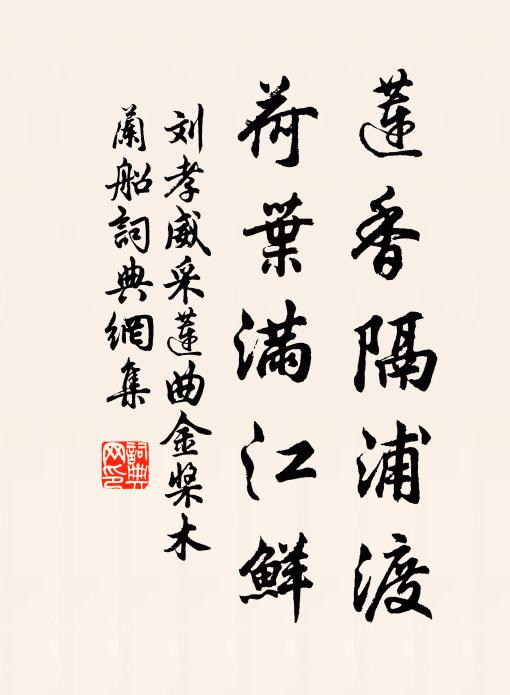 蓮香隔浦渡
荷葉滿江鮮
刘孝威采蓮曲金槳木
蘭船詞典網集
詞典網印